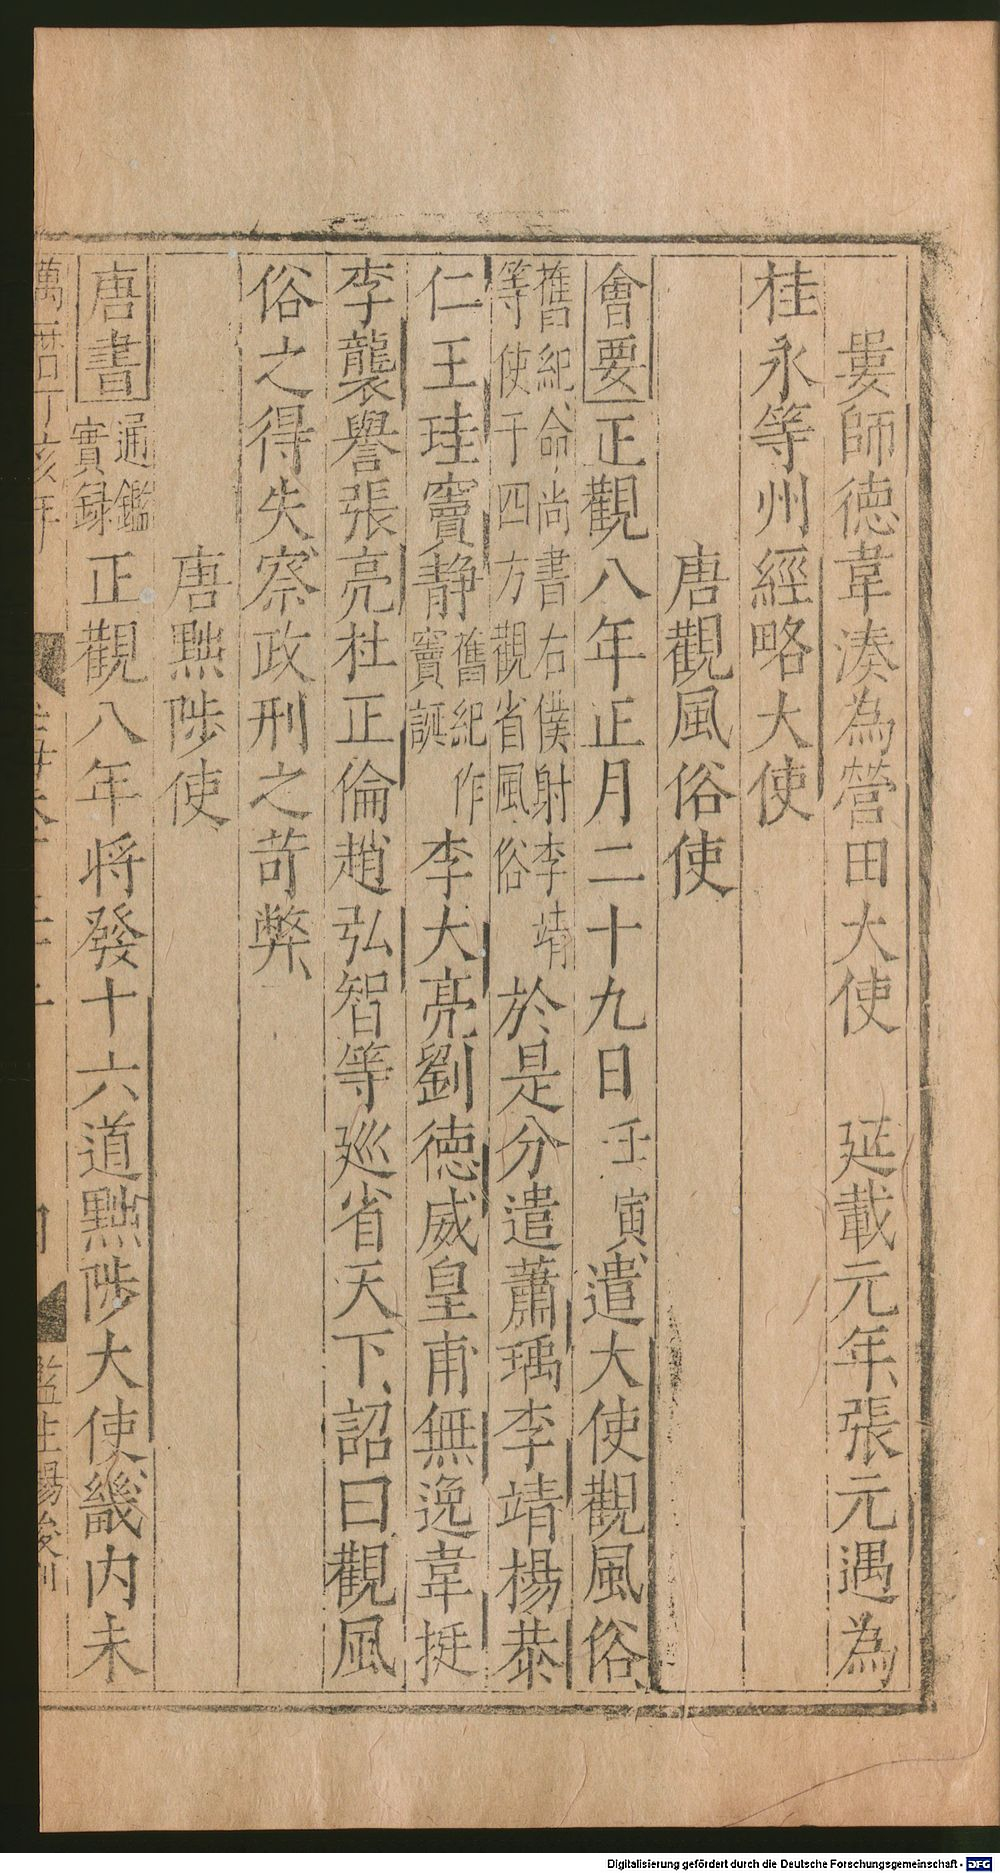 婁師德韋湊為營田大使　延載元年張元遇為
桂永等州經略大使
唐觀風俗使
會要正觀八年正月二十九日壬寅遣大使觀風俗
舊紀命尚書右僕射李靖
等使于四方觀省風俗
於是分遣蕭瑀李靖楊恭
仁王珪竇靜舊紀作
竇誕
李大亮劉德威皇甫無逸韋挺
李襲譽張亮杜正倫趙弘智等廵省天下詔曰觀風
俗之得失察政刑之苛弊
唐黜陟使
唐書通鑑
實録
正觀八年將發十六道黜陟大使畿内未
萬曆丁亥年
監生楊
Digitalisierung gefördert durch die Deutsche Forschungsgemeinschaft - DFG